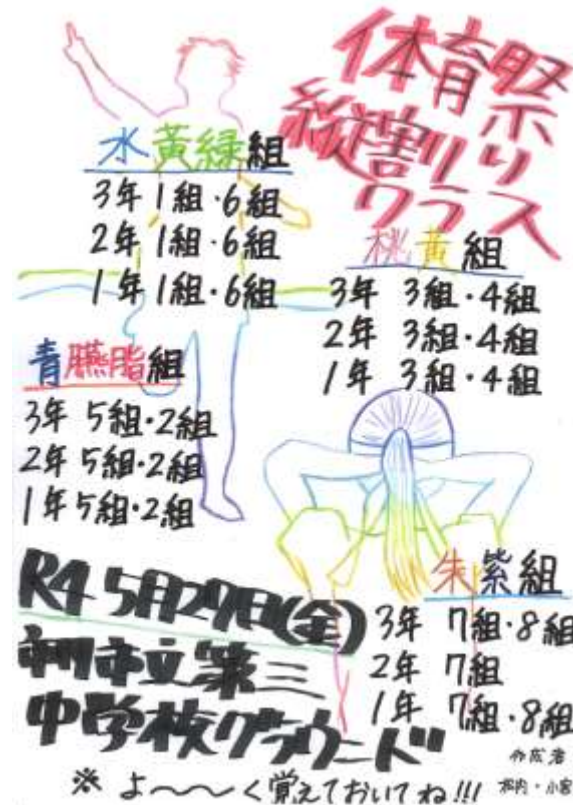 体育祭
縦割り
クラス
水黄緑組
3年 1組・6組
2年 1組・6組
1年 1組・6組
桃黄組
3年 3組・4組
2年 3組・4組
1年 3組・4組
青臙脂組
3年 5組・2組
2年 5組・2組
1年 5組・2組
朱紫組
3年 7組・8組
2年 7組
1年 7組・8組
R4 5月27日(金)
市立第三
中学校グラウンド
※ よ〜〜く覚えておいてね!!!
作成者